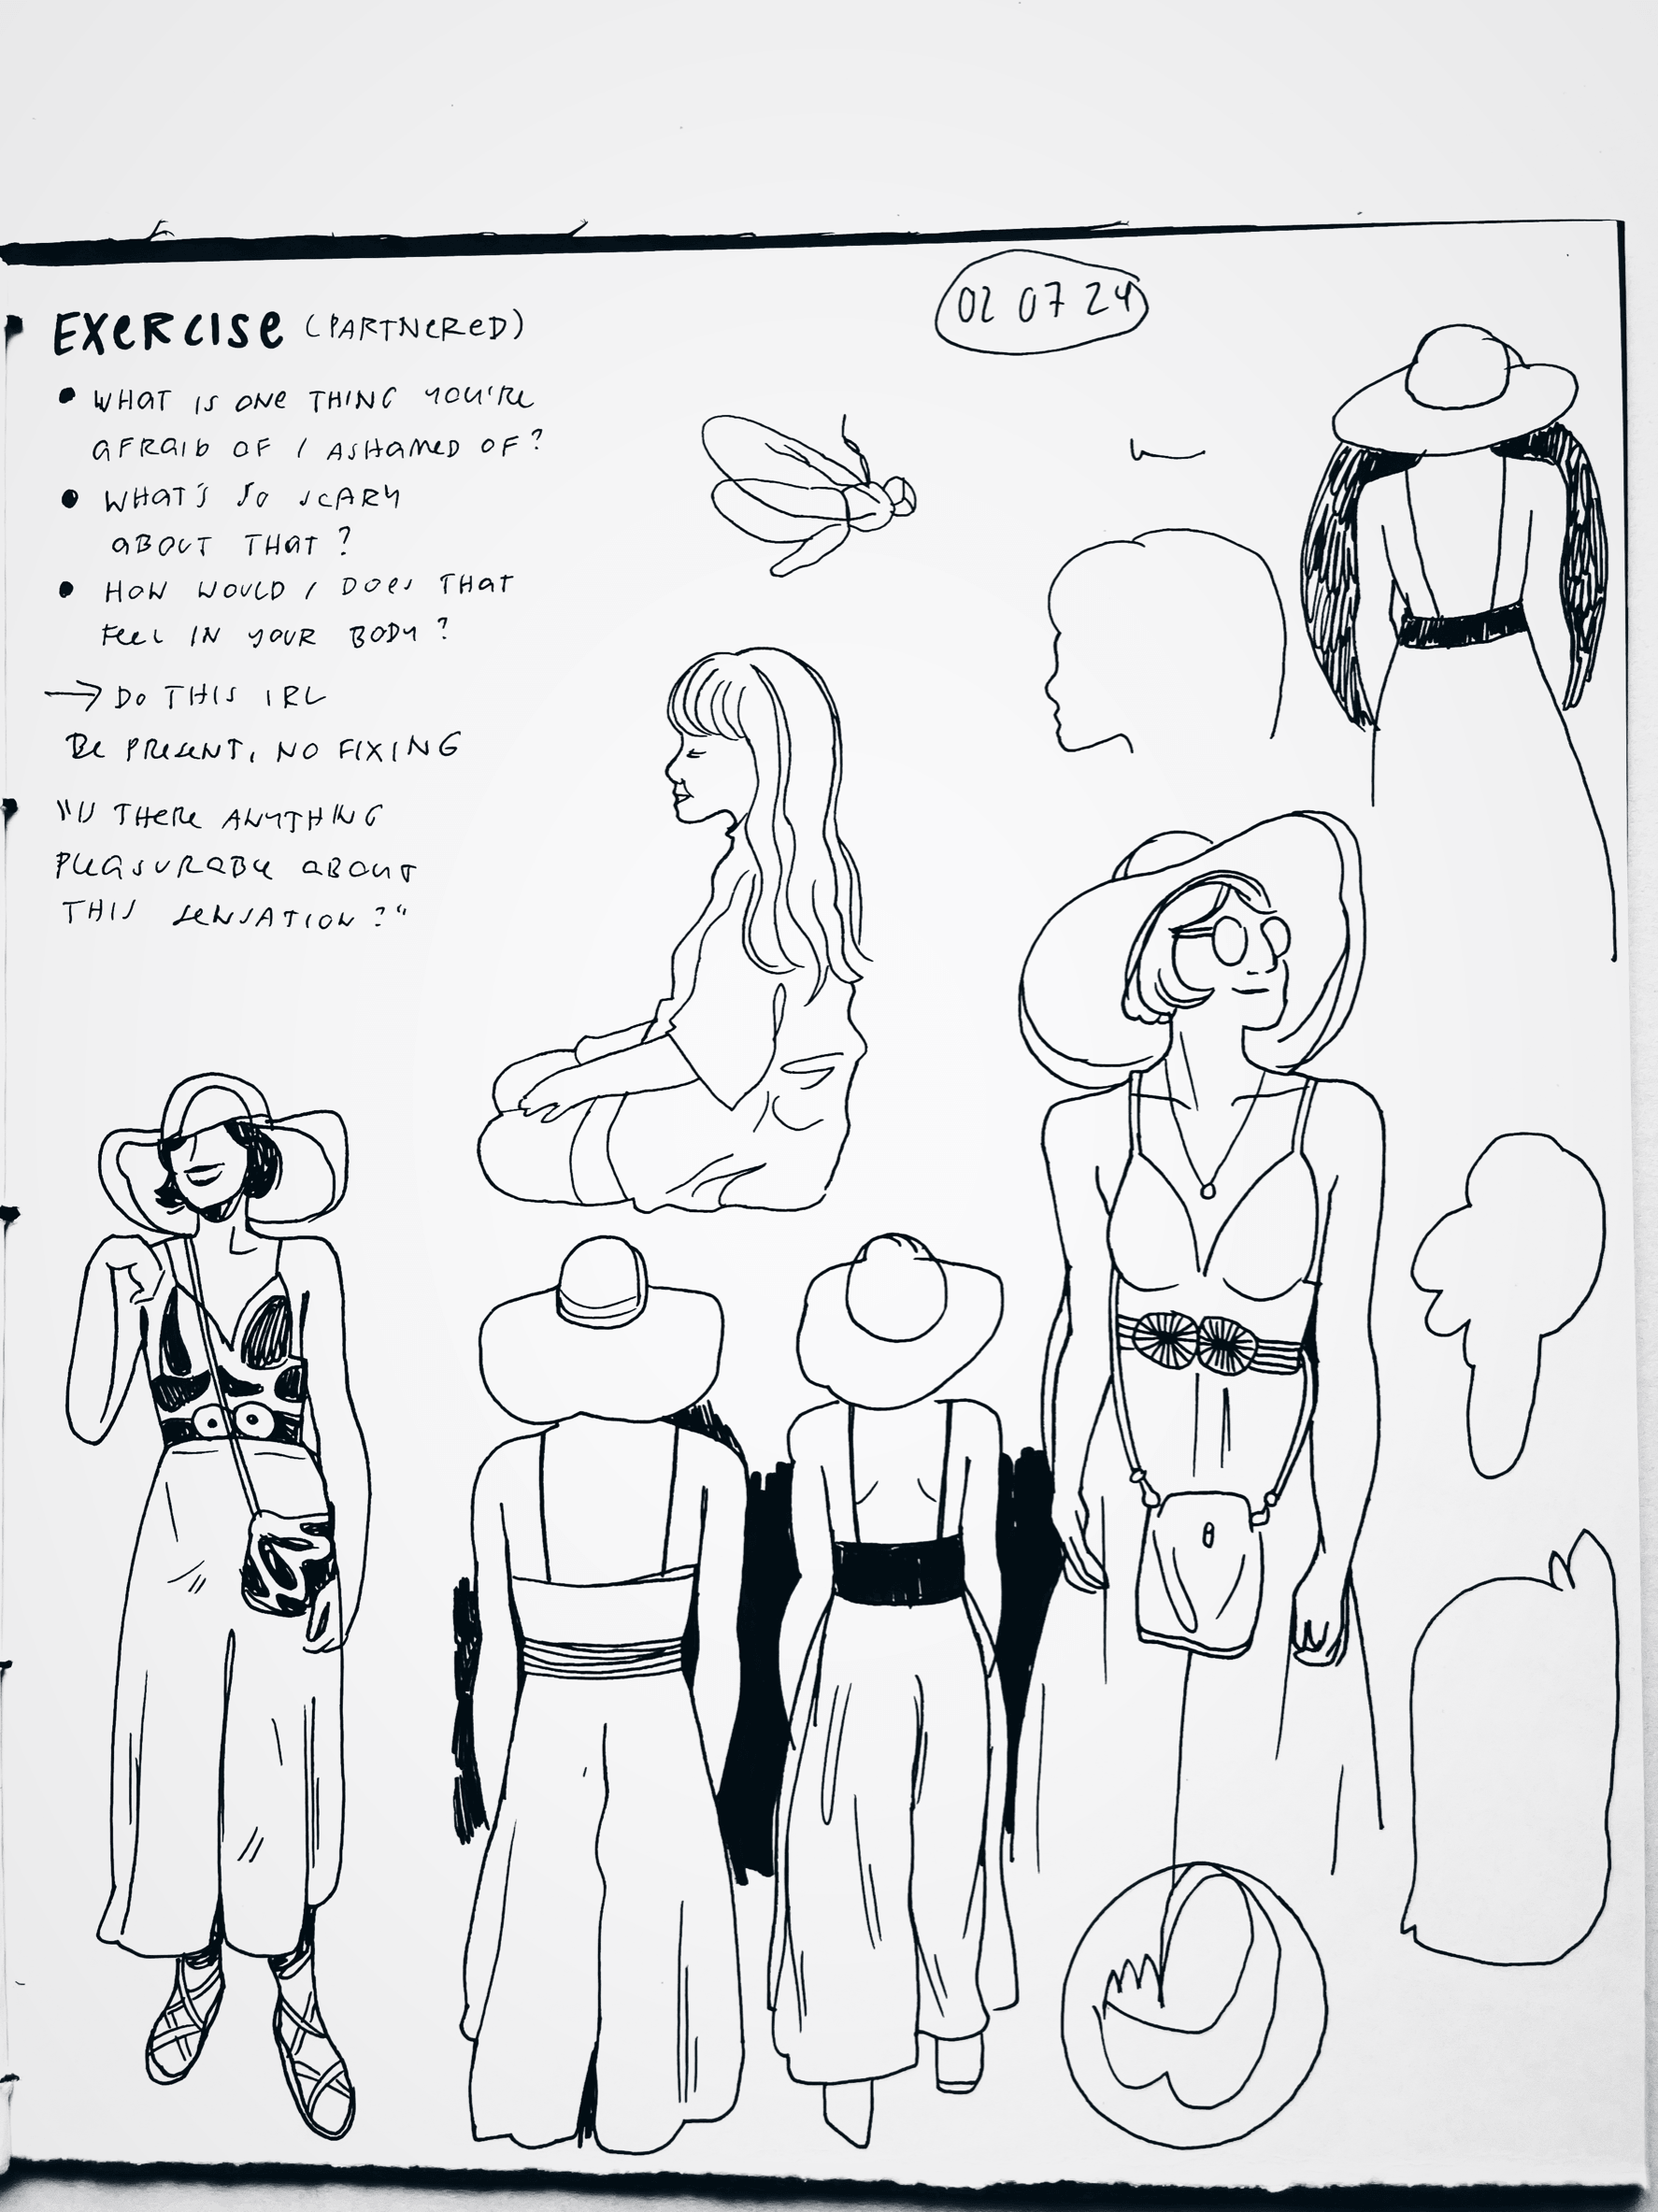 EXERCISE (PARTNERED)
02 07 24
• WHAT IS ONE THING YOU'RE
AFRAID OF / ASHAMED OF?
• WHAT'S SO SCARY
ABOUT THAT?
• HOW WOULD / DOES THAT
FEEL IN YOUR BODY?
→ DO THIS IRL
BE PRESENT, NO FIXING
"IS THERE ANYTHING
PLEASURABLE ABOUT
THIS SENSATION?"